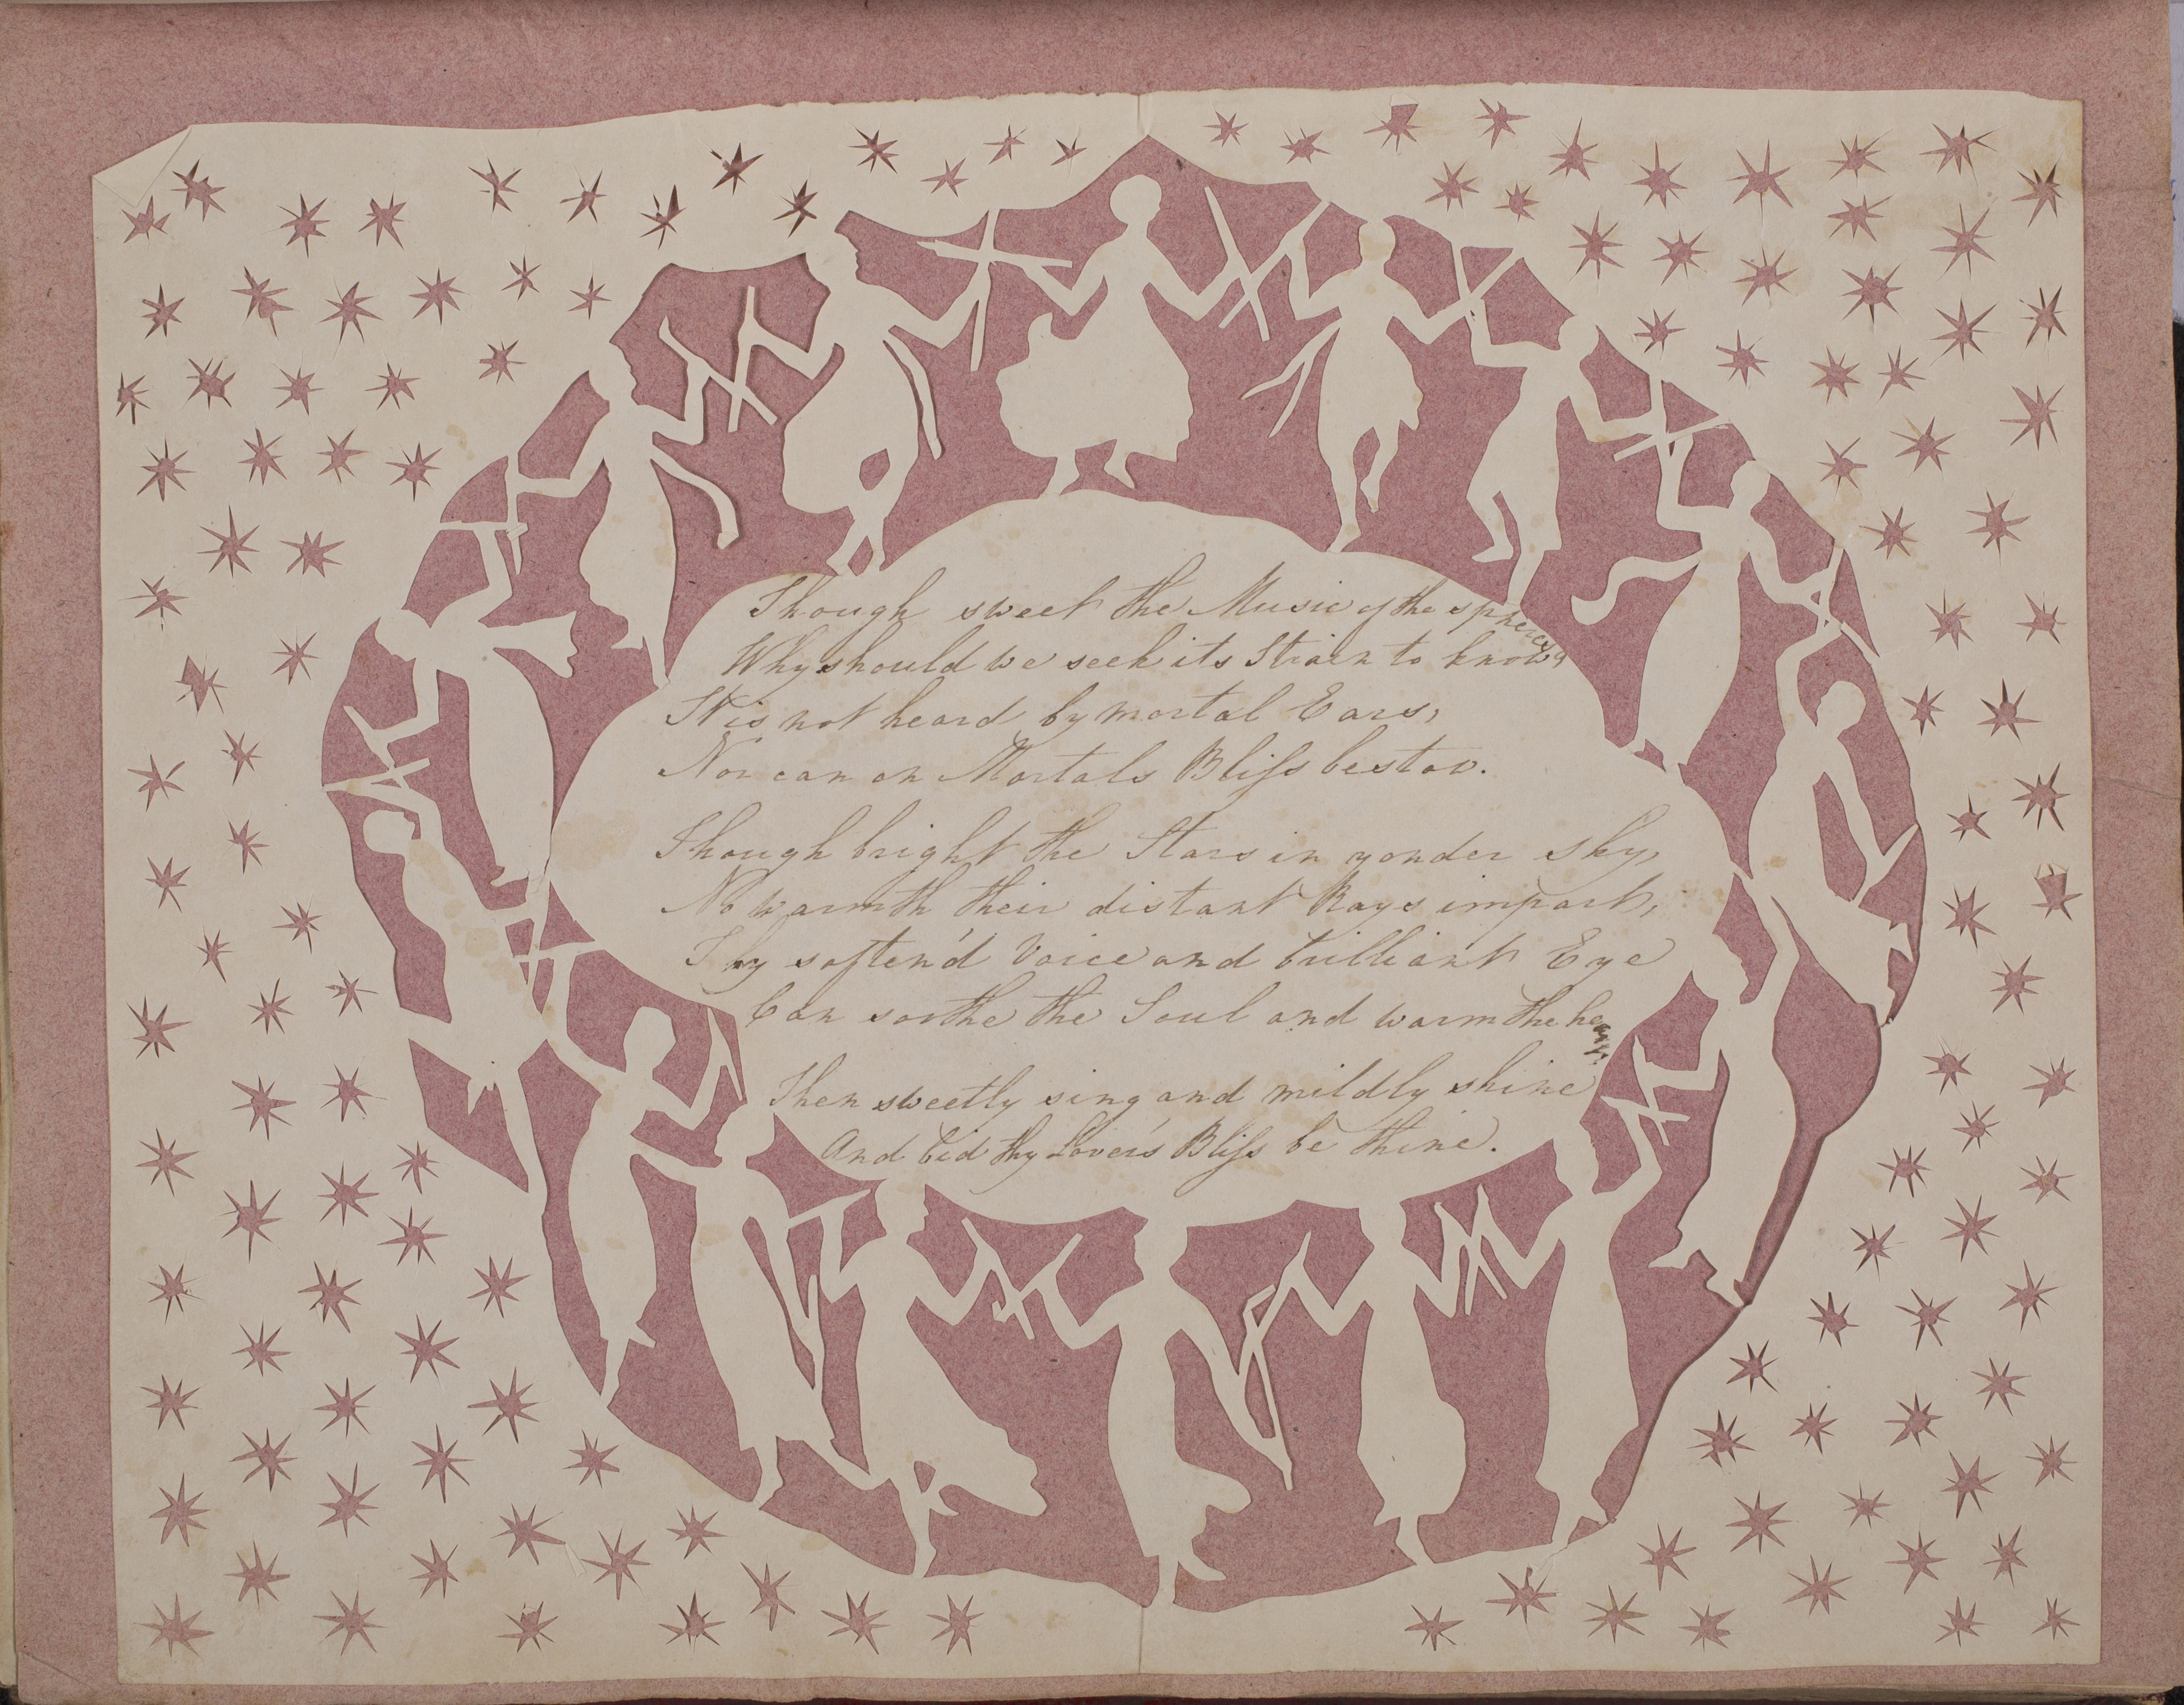 Though sweet the Music of the spheres
Why should we seek its Strain to know
It is not heard by mortal Ears,
Nor can on Mortals Bliſs bestow.
Though bright the Stars in yonder Sky,
No warmth their distant Rays impart,
Thy soften'd Voice and brilliant Eye
Can soothe the Soul and warm the heart.
Then sweetly sing and mildly shine
And bid thy Lover's Bliſs be thine.